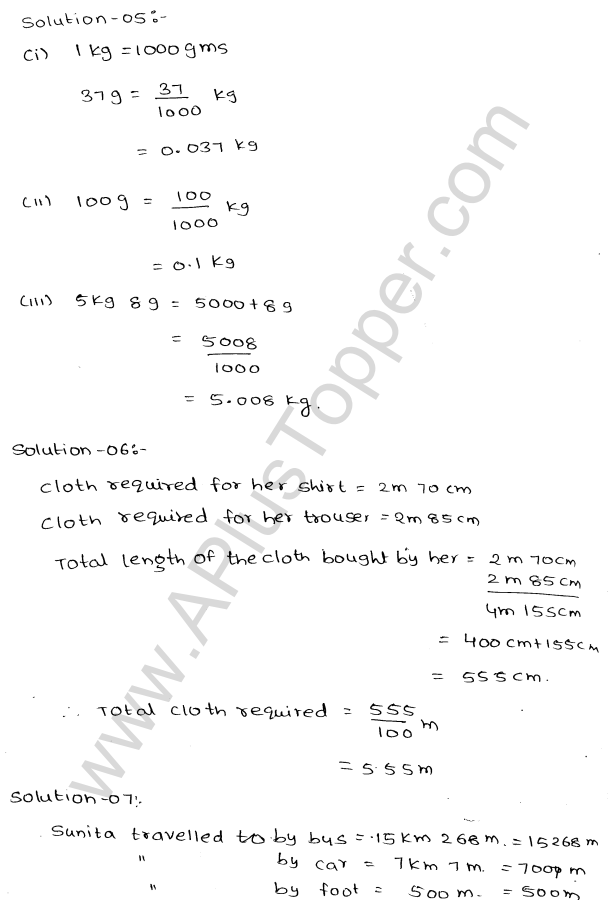 Solution-05:-
(i) 1 kg = 1000 gms
37g = 37/1000 kg
= 0.037 kg
(ii) 100g = 100/1000 kg
= 0.1 kg
(iii) 5kg 8g = 5000+8g
= 5008/1000
= 5.008 kg.
Solution-06:-
Cloth required for her shirt = 2m 70 cm
Cloth required for her trouser = 2m 85 cm
Total length of the cloth bought by her = 2 m 70cm
2 m 85cm
4m 155cm
= 400 cm+155cm
= 555 cm.
∴ Total cloth required = 555/100 m
= 5.55m
Solution-07:
Sunita travelled to by bus = 15 Km 268 m. = 15268m
" by car = 7km 7m. = 7007 m
" by foot = 500m. = 500m
www.APlusTopper.com